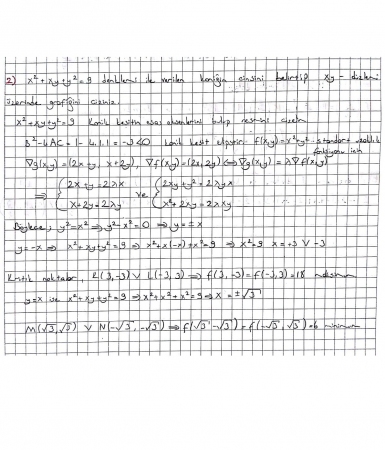 2) x² + xy + y² = 9 denklemi ile verilen koniğin cinsini belirtip xy - düzlemi
üzerinde grafiğini çiziniz.
x² + xy + y² = 9 Konik kesitin esas eksenlerini bulup resmini çizelim
B² - 4AC = 1 - 4.1.1 = -3 < 0 konik kesit elipstir. f(x,y) = x² + y² standart uzaklık
fonksiyonu için
∇g(x,y) = (2x+y, x+2y), ∇f(x,y) = (2x, 2y) ⟺ ∇g(x,y) = λ∇f(x,y)
⇒ { 2x+y = 2λx ve { 2xy+y² = 2λyx
x+2y = 2λy x²+2xy = 2λxy
Böylece; y² = x² ⇒ y² - x² = 0 ⇒ y = ±x
y = -x ⇒ x² + xy + y² = 9 ⇒ x² + x(-x) + x² = 9 ⇒ x² = 9 x = +3 ∨ -3
Kritik noktalar, K(3,-3) ∨ L(-3,3) ⇒ f(3,-3) = f(-3,3) = 18 maksimum
y = x ise x² + xy + y² = 9 ⇒ x² + x² + x² = 9 ⇒ x = ±√3
M(√3,√3) ∨ N(-√3,-√3) ⇒ f(√3,-√3) = f(-√3,√3) = 6 minimum